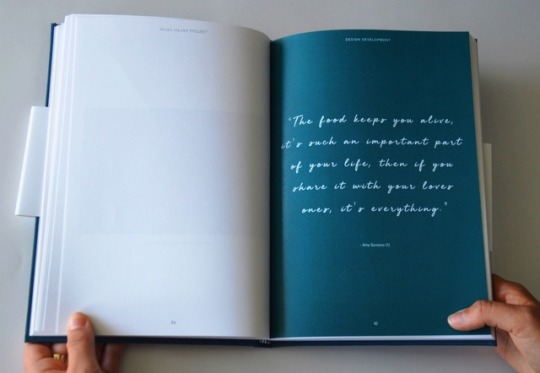 DESIGN DEVELOPMENT
"The food keeps you alive,
it's such an important part
of your life, then if you
share it with your loves
ones, it's everything."